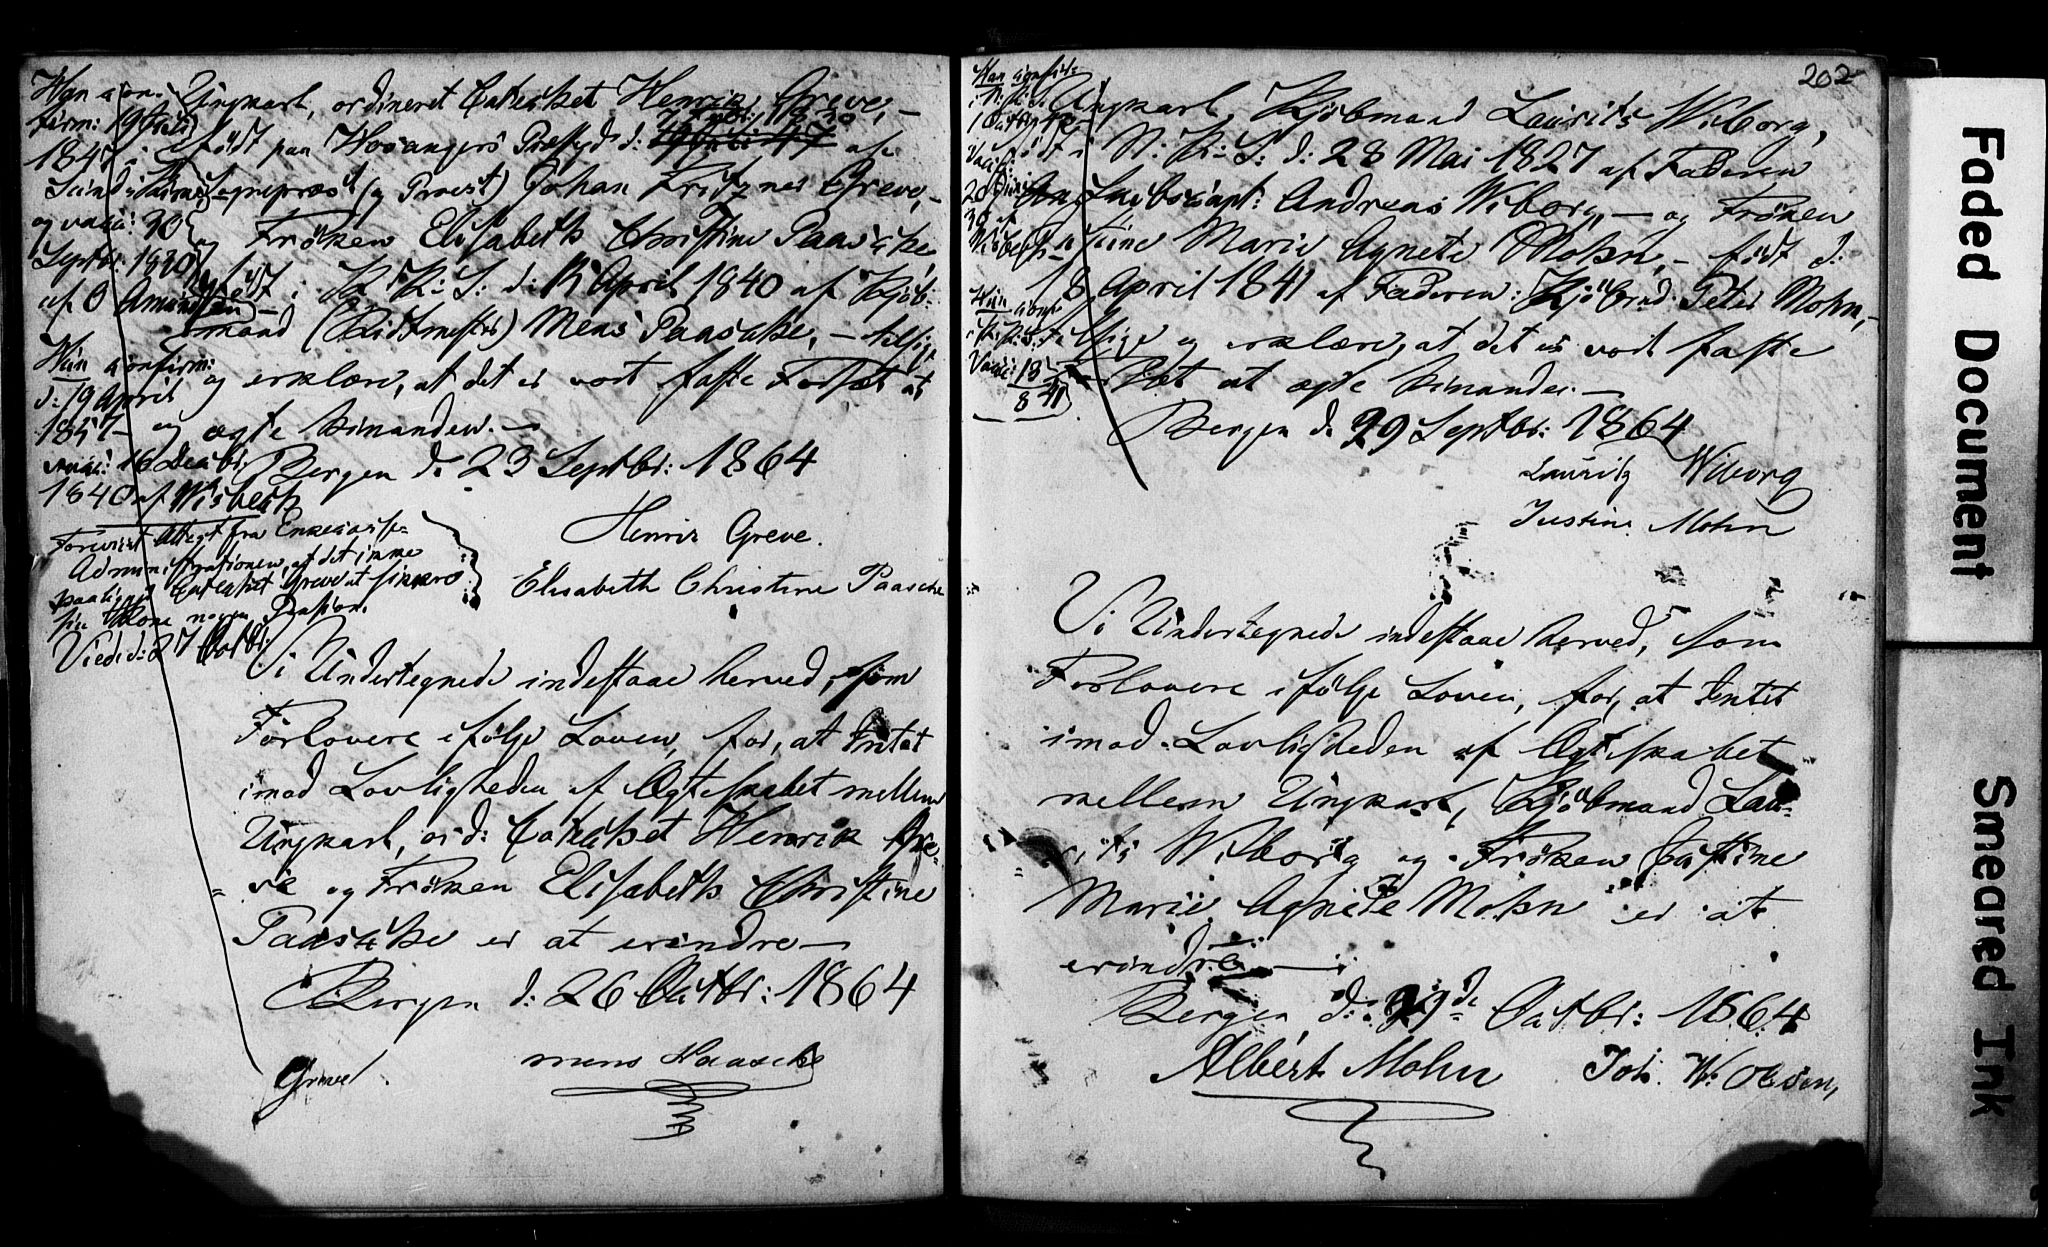 Ungkarl, ordineret Catechet Henrik Greve, –
født paa Præstegd d:
Sognepræst (og Provst) Johan Greve, –
og Frøken Elisabeth Christine Paasche
født i N. K: S: d: April 1840 af Kjøb-
mand (Ridtmester) Mens Paasche, – tilsige
og erklære, at det er vort faste Forsæt at
og ægte hinanden. –
Bergen d. 23 Septbr: 1864
Henrik Greve.
Elisabeth Christine Paasche
Han con-
firm: 19
1847 i
Sund
og vacc: 30
Septbr: 1830
af O Amundsen
Hun confirm:
d: 19 April
1857 –
vacc: 16 Decbr:
1840 af Wisbech
Forevist Attest fra Enkecasse-
Administrationen, at det ikke
paaligner Catechet Greve at sikkre
sin Kone nogen Pension.
Viede d: 27 Octbr:
Vi Undertegnede indestaae herved, som
Forlovere ifølge Loven, for, at Intet
imod Lovligheden af Ægteskabet mellem
Ungkarl, ord: Catechet Henrik Gre-
ve og Frøken Elisabeth Christine
Paasche er at erindre –
Bergen d: 26 Octbr: 1864
Greve. Mens Paasche
202
Ungkarl, Kjøbmand Laurits Wiborg,
født i N: K: S: d: 28 Mai 1827 af Faderen
Andreas Wiborg, – og Frøken
Justine Marie Agnete Mohn, – født d:
18 April 1841 af Faderen: Kjøbmd. Peter Mohn, –
tilsige og erklære, at det er vort faste
Forsæt at ægte hinanden. –
Bergen d. 29 Septbr: 1864
Lauritz Wiborg
Justine Mohn
Han confir-
Vacc:
20
30 af
Wisbech
Hun conf:
i N: K: S:
Vacc: 18
8 41
Vi Undertegnede indestaae herved, som
Forlovere ifølge Loven, for, at Intet
imod Lovligheden af Ægteskabet
mellem Ungkarl, Kjøbmand Lau-
rits Wiborg og Frøken Justine
Marie Agnete Mohn er at
erindre –
Bergen, d: 29de Octbr: 1864
Albert Mohn Joh. W. Olsen,
Faded Document
Smeared Ink